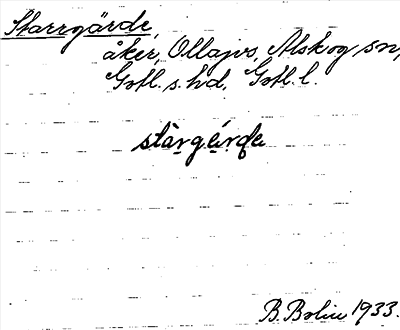 Starrgärde,
åker, Ollajvs, Alskog sn,
Gotl. s. hd, Gotl. l.
stàrgẹ́rde
B. Bolin 1933.